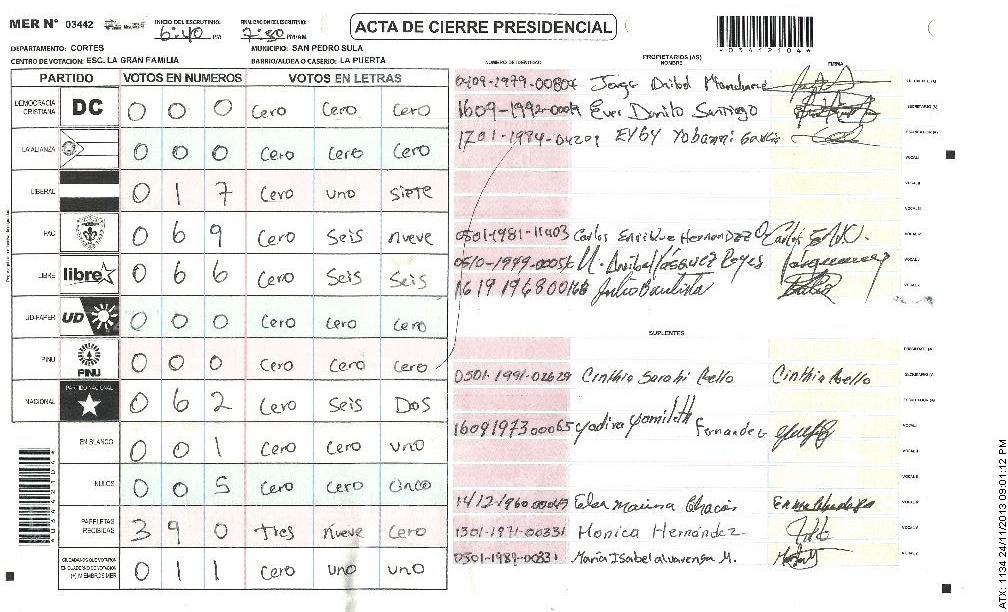 MER N° 03442
INICIO DEL ESCRUTINIO:
6:40 PM
FINALIZACION DEL ESCRUTINIO:
7:30 PM/AM
ACTA DE CIERRE PRESIDENCIAL
DEPARTAMENTO: CORTES
MUNICIPIO: SAN PEDRO SULA
CENTRO DE VOTACION: ESC. LA GRAN FAMILIA
BARRIO/ALDEA O CASERIO: LA PUERTA
PARTIDO VOTOS EN NUMEROS VOTOS EN LETRAS
DEMOCRACIA CRISTIANA DC 0 0 0 Cero Cero Cero
LA ALIANZA 0 0 0 Cero Cero Cero
LIBERAL 0 1 7 Cero uno Siete
PAC 0 6 9 Cero Seis nueve
LIBRE libre 0 6 6 Cero Seis Seis
UD-FAPER UD 0 0 0 Cero Cero Cero
PINU PINU 0 0 0 Cero Cero Cero
NACIONAL PARTIDO NACIONAL 0 6 2 Cero Seis Dos
EN BLANCO 0 0 1 Cero Cero uno
NULOS 0 0 5 Cero Cero Cinco
PAPELETAS RECIBIDAS 3 9 0 tres nueve Cero
CIUDADANOS QUE VOTARON EN CUADERNO DE VOTACION (+) MIEMBROS MER 0 1 1 Cero uno uno
PROPIETARIOS (AS)
NUMERO DE IDENTIDAD NOMBRE FIRMA
Jorge Anibal
Ever Danilo Santiago
Carlos Enrique Hernandez
M. Anibal Vasquez Reyes
Julio Bautista
SUPLENTES
0501-1991-02629 Cinthia Sarahi Coello Cinthia Coello
16091973 00065 Yadira Yamileth Fernandez
14/12-1960-00047
1301-1971-00331 Monica Hernández
0301-1989-00331 María Isabel alvarenga M.
ATX: 1134 24/11/2013 09:01:12 PM